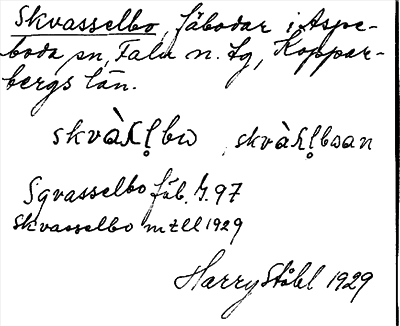 Skvasselbo, fäbodar i Aspe-
boda sn, Falu n. tg, Koppar-
bergs län.
skvàʎl̥bω skvàʎl̥bωan
Sqvasselbo fäb. K. 97
Skvasselbo mtll 1929
Harry Ståhl 1929